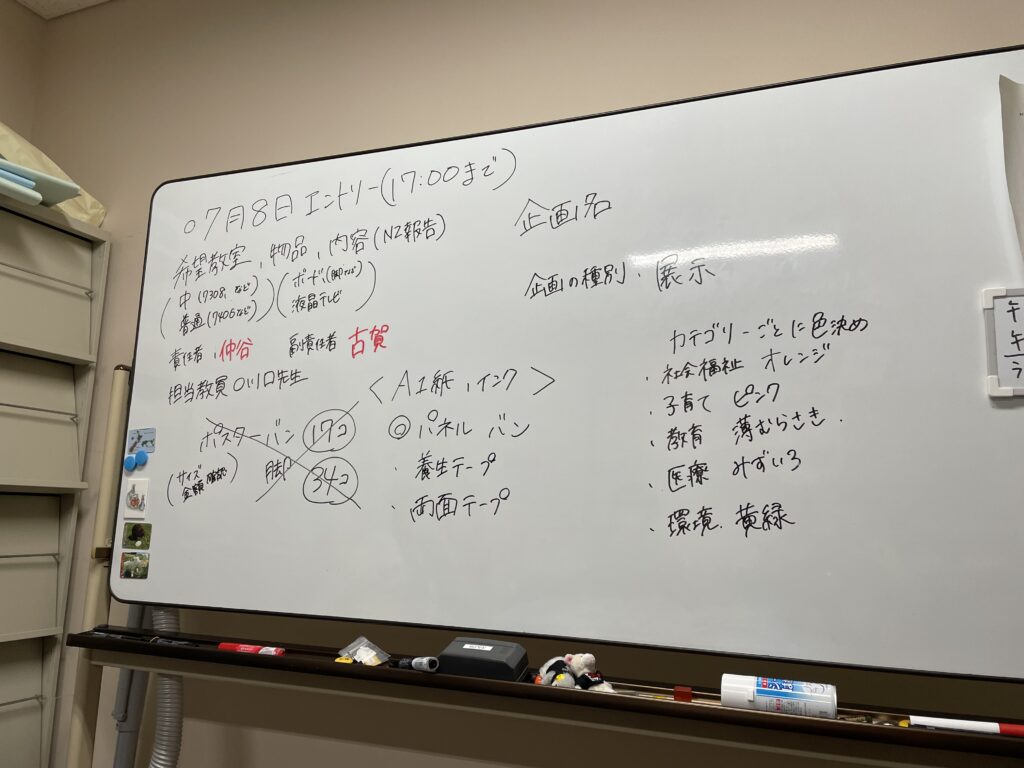 ○7月8日 エントリー(17:00まで)
希望教室、物品、内容(NZ報告)
(中(7308, など)
普通(7406など))
(ボード,(脚など)
液晶テレビ)
責任者、仲谷 副責任者 古賀
担当教員 ○川口先生
ポスターバン 17コ
脚 34コ
(サイズ
金額)
<A1紙、インク>
◎パネル バン
・養生テープ
・両面テープ
企画名
企画の種別・展示
カテゴリーごとに色決め
・社会福祉 オレンジ
・子育て ピンク
・教育 薄むらさき.
・医療 みずいろ
・環境. 黄緑
午
午